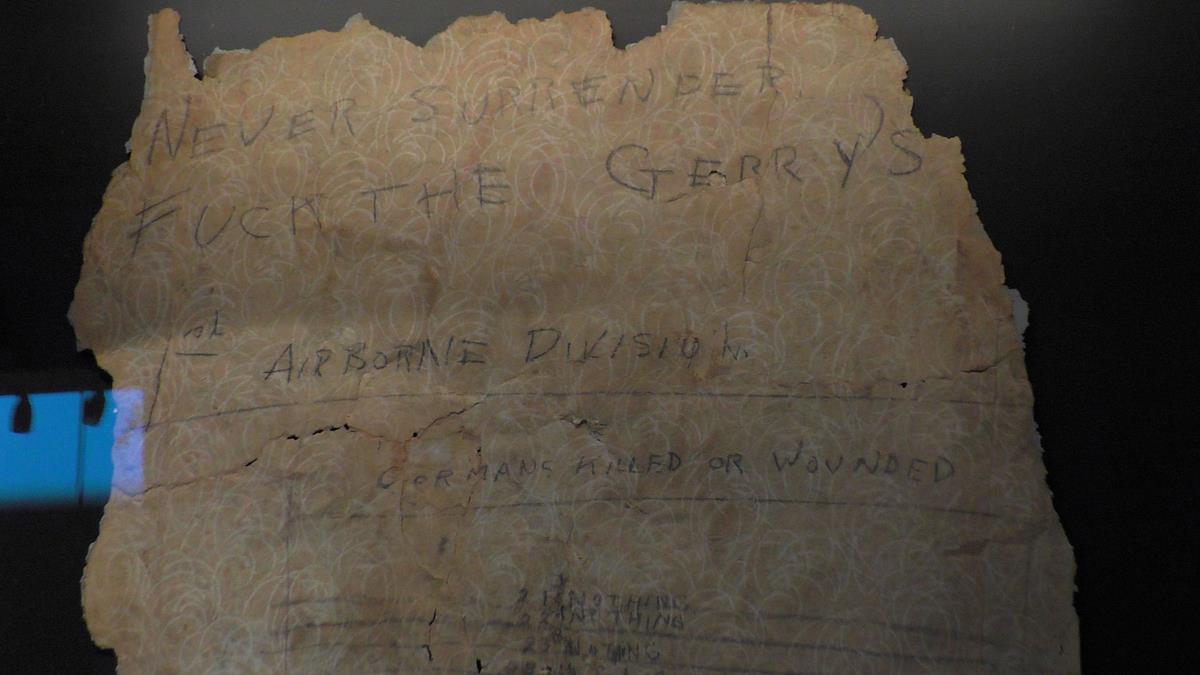 NEVER SURRENDER.
FUCK THE GERRY'S
1st AIRBORNE DIVISION.
GERMANS KILLED OR WOUNDED
21 NOTHING
22 NOTHING
23 NOTHING